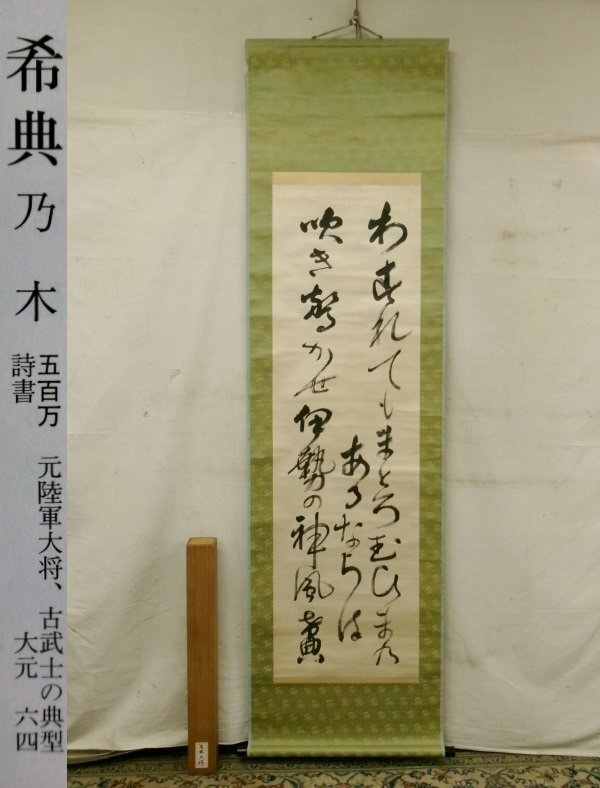 希典 乃木 五百万 元陸軍大将、古武士の典型
詩書 大元 六四
わすれてもまとろむひまの
あるならは
吹き驚かせ伊勢の神風 希典
乃木大将